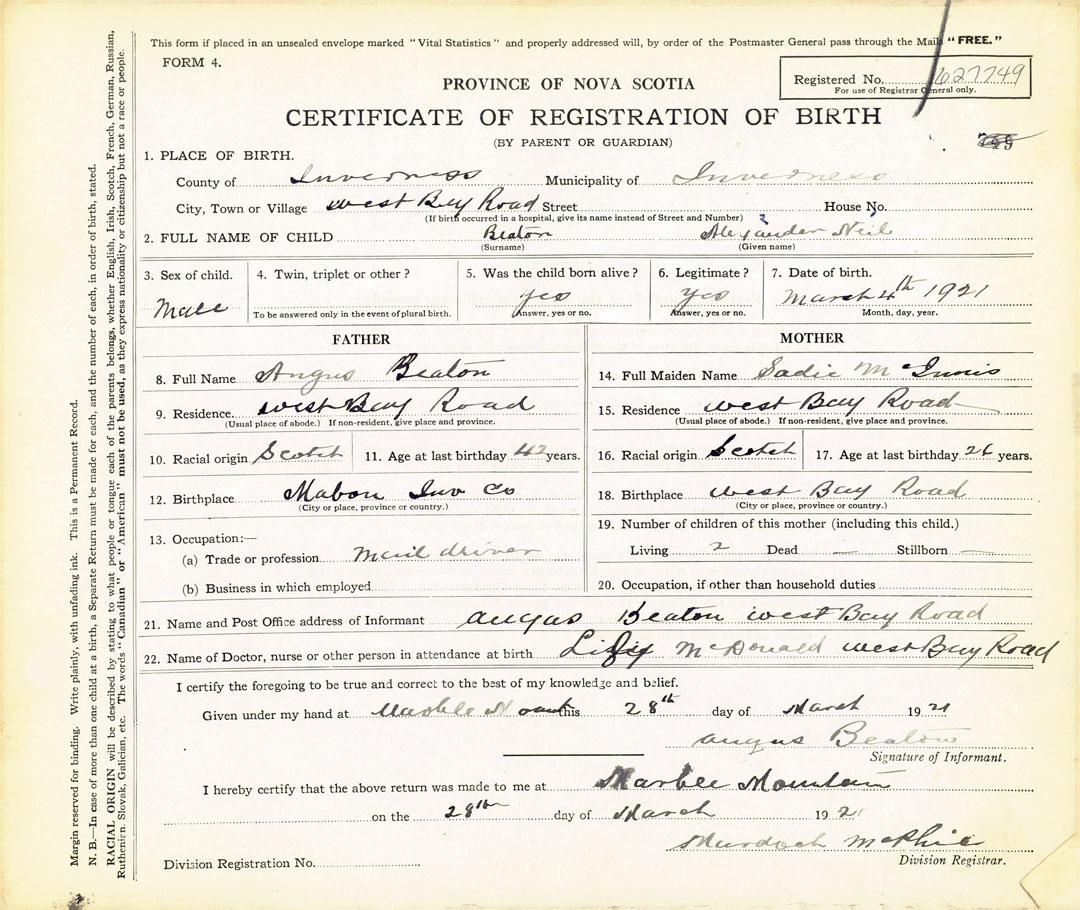 This form if placed in an unsealed envelope marked "Vital Statistics" and properly addressed will, by order of the Postmaster General pass through the Mails "FREE."
FORM 4.
Registered No. 627749
For use of Registrar General only.
PROVINCE OF NOVA SCOTIA
CERTIFICATE OF REGISTRATION OF BIRTH
(BY PARENT OR GUARDIAN)
1. PLACE OF BIRTH.
County of Inverness Municipality of Inverness
City, Town or Village West Bay Road Street House No.
(If birth occurred in a hospital, give its name instead of Street and Number)
2. FULL NAME OF CHILD Beaton Alexander Neil
(Surname) (Given name)
3. Sex of child. 4. Twin, triplet or other? 5. Was the child born alive? 6. Legitimate? 7. Date of birth.
Male yes yes March 4th 1921
To be answered only in the event of plural birth. Answer, yes or no. Answer, yes or no. Month, day, year.
FATHER MOTHER
8. Full Name Angus Beaton 14. Full Maiden Name Sadie McInnis
9. Residence. West Bay Road 15. Residence West Bay Road
(Usual place of abode.) If non-resident, give place and province. (Usual place of abode.) If non-resident, give place and province.
10. Racial origin Scotch 11. Age at last birthday 42 years. 16. Racial origin Scotch 17. Age at last birthday 26 years.
12. Birthplace Mabou Inv Co 18. Birthplace West Bay Road
(City or place, province or country.) (City or place, province or country.)
13. Occupation:— 19. Number of children of this mother (including this child.)
(a) Trade or profession Mail driver Living 2 Dead — Stillborn —
(b) Business in which employed 20. Occupation, if other than household duties
21. Name and Post Office address of Informant Angus Beaton West Bay Road
22. Name of Doctor, nurse or other person in attendance at birth McDonald West Bay Road
I certify the foregoing to be true and correct to the best of my knowledge and belief.
Given under my hand at Marble Mount this 28th day of March 1921
Angus Beaton
Signature of Informant.
I hereby certify that the above return was made to me at Marble Mountain
on the 28th day of March 1921
Murdoch McPhie
Division Registrar.
Division Registration No.
Margin reserved for binding. Write plainly, with unfading ink. This is a Permanent Record.
N. B.—In case of more than one child at a birth, a Separate Return must be made for each, and the number of each, in order of birth, stated.
RACIAL ORIGIN will be described by stating to what people or tongue each of the parents belongs, whether English, Irish, Scotch, French, German, Russian,
Ruthenian, Slovak, Galician, etc. The words "Canadian" or "American" must not be used, as they express nationality or citizenship but not a race or people.